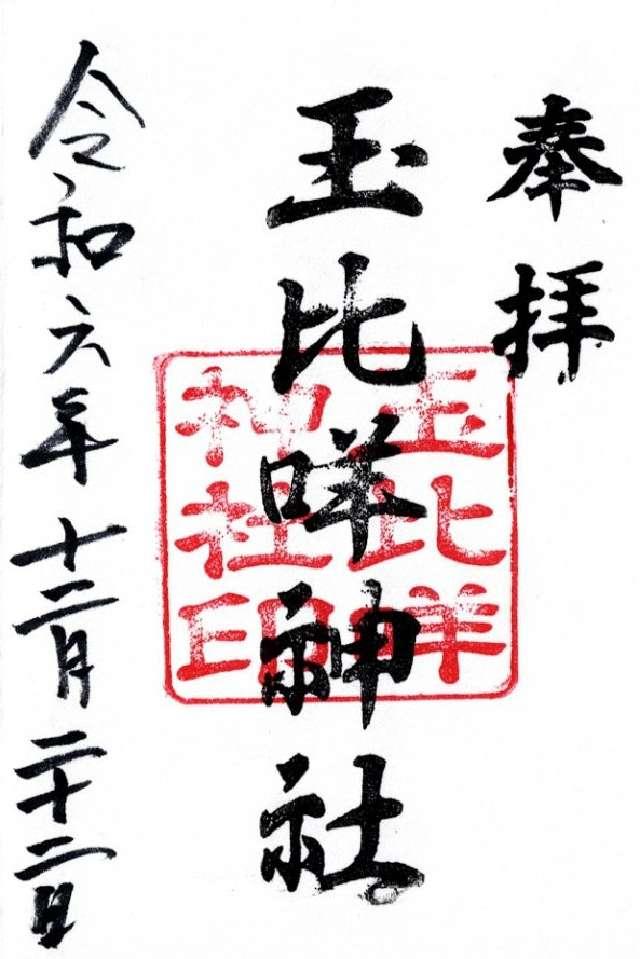 奉拝
玉比咩神社
玉比咩
神社印
令和六年十二月二十二日